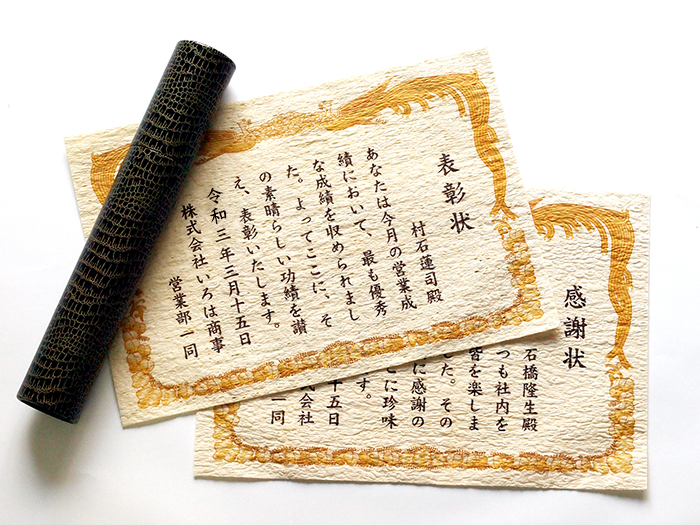 表彰状
村石蓮司殿
あなたは今月の営業成
績において、最も優秀
な成績を収められまし
た。よってここに、そ
の素晴らしい功績を讃
え、表彰いたします。
令和三年三月十五日
株式会社いろは商事
営業部一同
感謝状
石橋隆生殿
つも社内を
皆を楽しま
した。その
に感謝の
こに珍味
す。
十五日
式会社
一同